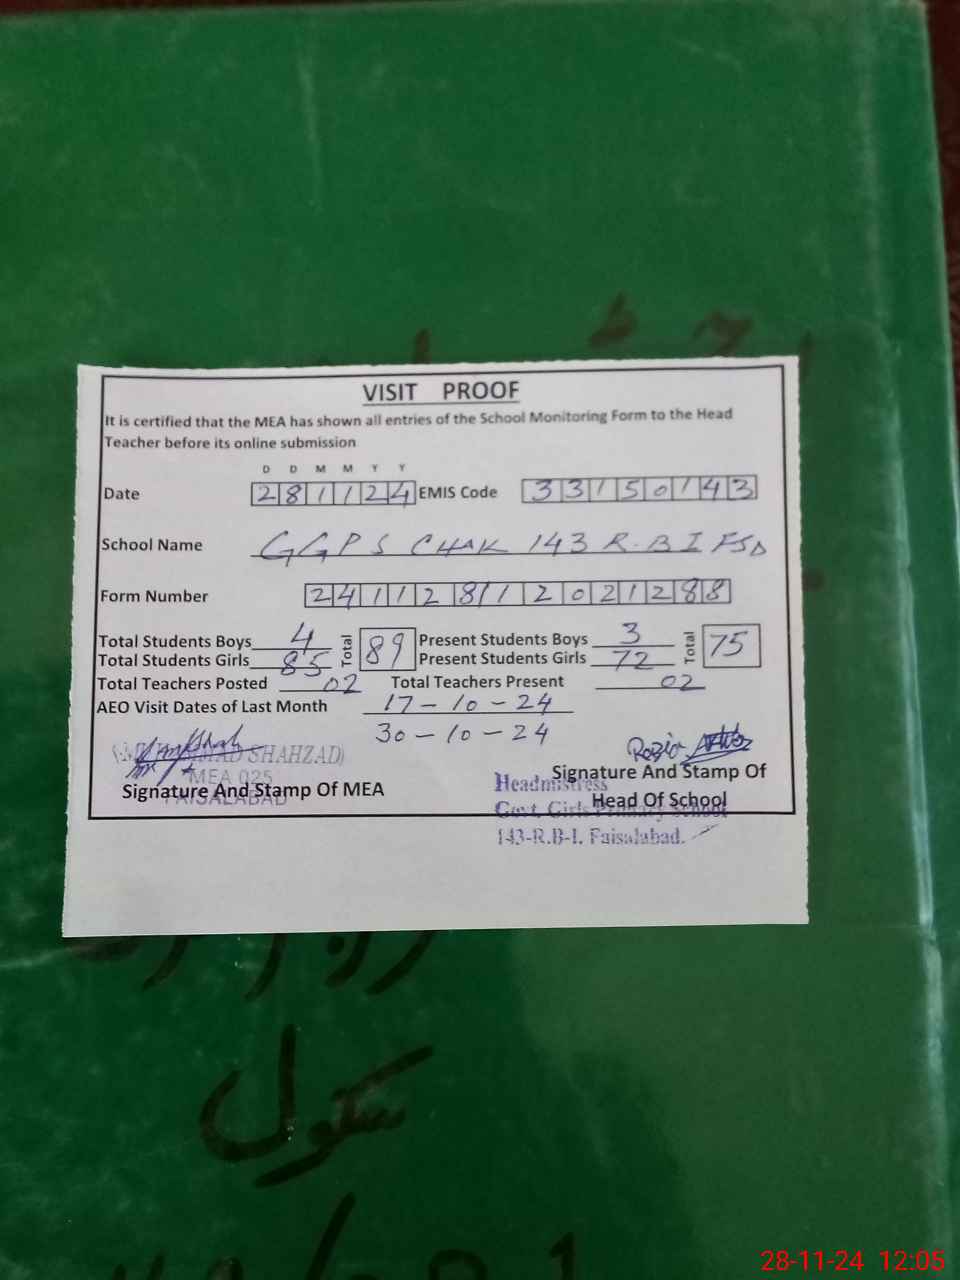 VISIT PROOF
It is certified that the MEA has shown all entries of the School Monitoring Form to the Head
Teacher before its online submission
D D M M Y Y
Date 281124 EMIS Code 33150143
School Name GGPS CHAK 143 R.B I FSD
Form Number 241128112021288
Total Students Boys 4 Total 89 Present Students Boys 3 Total 75
Total Students Girls 85 Present Students Girls 72
Total Teachers Posted 02 Total Teachers Present 02
AEO Visit Dates of Last Month 17-10-24
30-10-24
SHAHZAD)
MEA 025
FAISALABAD
Signature And Stamp Of MEA
Razia
Signature And Stamp Of
Head Of School
Headmistress
Govt. Girls Primary School
143-R.B-I. Faisalabad.
سکول
28-11-24 12:05